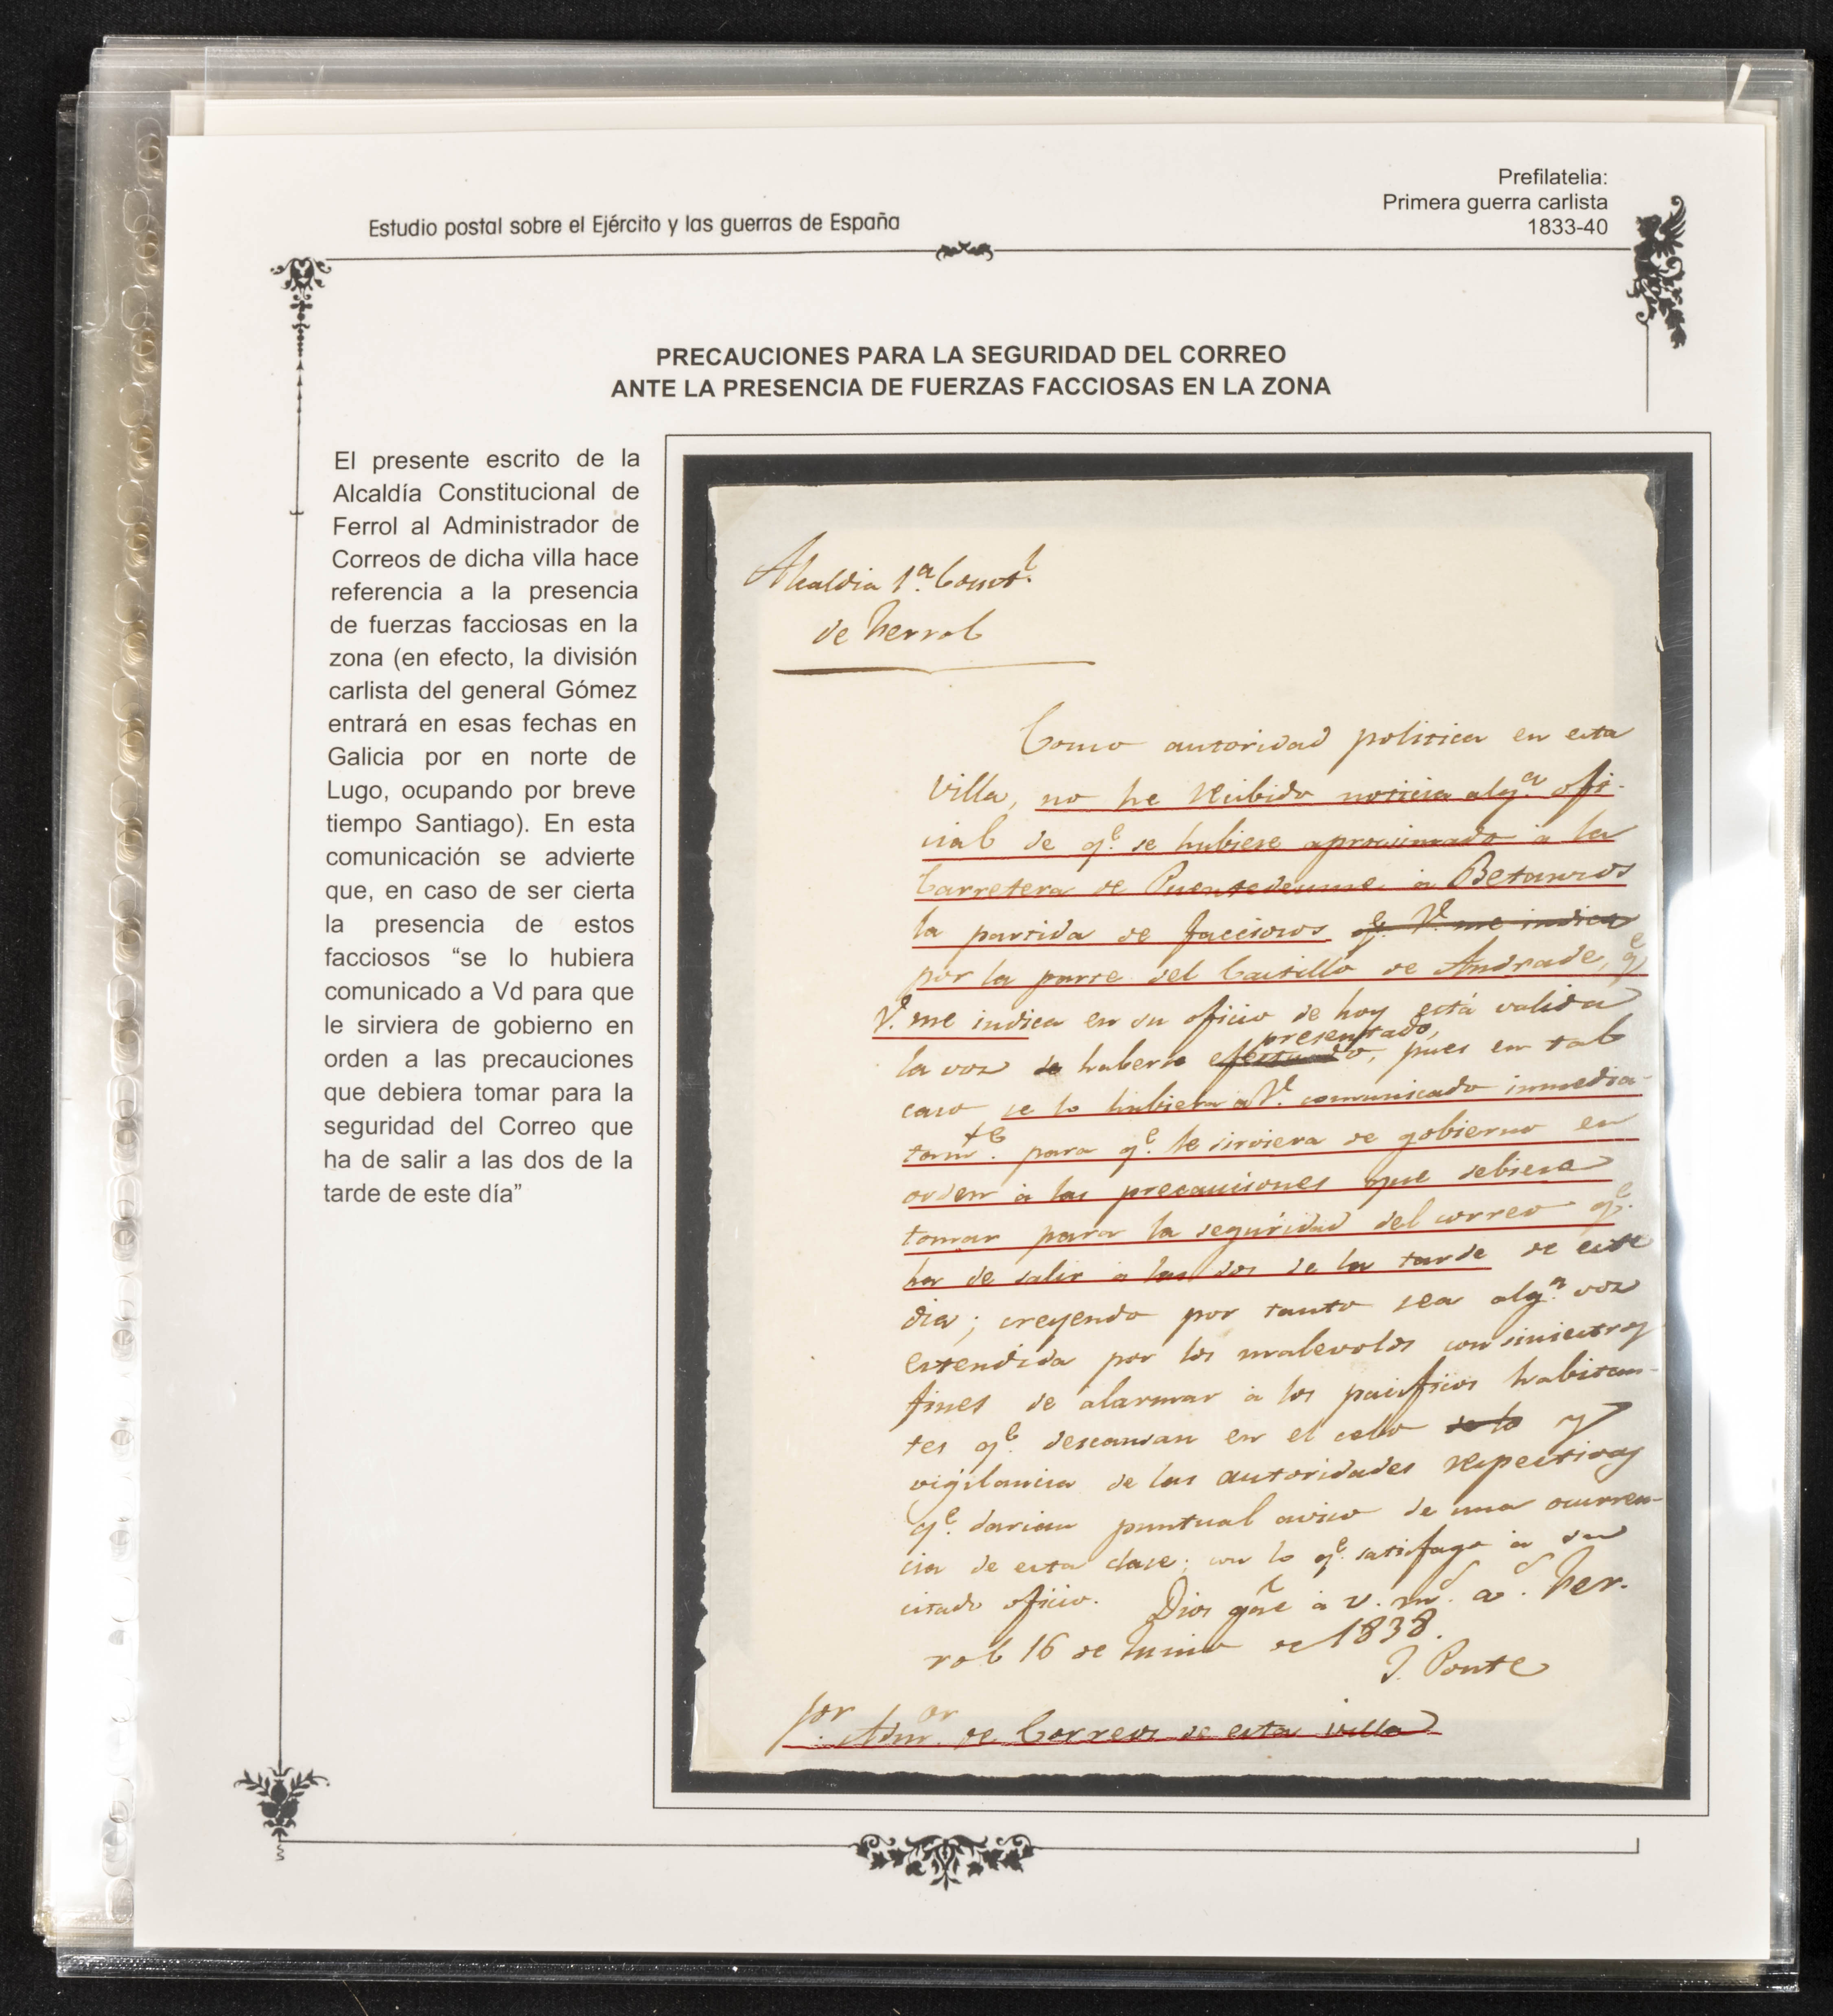 Estudio postal sobre el Ejército y las guerras de España
Prefilatelia:
Primera guerra carlista
1833-40
PRECAUCIONES PARA LA SEGURIDAD DEL CORREO
ANTE LA PRESENCIA DE FUERZAS FACCIOSAS EN LA ZONA
El presente escrito de la
Alcaldía Constitucional de
Ferrol al Administrador de
Correos de dicha villa hace
referencia a la presencia
de fuerzas facciosas en la
zona (en efecto, la división
carlista del general Gómez
entrará en esas fechas en
Galicia por en norte de
Lugo, ocupando por breve
tiempo Santiago). En esta
comunicación se advierte
que, en caso de ser cierta
la presencia de estos
facciosos “se lo hubiera
comunicado a Vd para que
le sirviera de gobierno en
orden a las precauciones
que debiera tomar para la
seguridad del Correo que
ha de salir a las dos de la
tarde de este día”
Alcaldia 1ª. Const.l
de Ferrol
Como autoridad politica en esta
Villa, no he recibido noticia alg.a ofi-
cial de q.e se hubiese aprocsimado à la
Carretera de Puentedeume à Betanzos
la partida de facciosos q.e V. me indica
por la parte del Castillo de Andrade, q.e
V. me indica en su oficio de hoy está valida
la voz de haberse presentado, pues en tal
caso se lo hubiera à V. comunicado inmedia-
tam.te para q.e le sirviera de gobierno en
orden à las precauciones que debiera
tomar para la seguridad del correo q.e
ha de salir à las dos de la tarde de este
dia; creyendo por tanto sea alg.a voz
estendida por los malevolos con siniestros
fines de alarmar à los pacificos habitan-
tes q.e descansan en el celo de lo y
vigilancia de las autoridades respectivas
q.e darian puntual aviso de una ocurren-
cia de esta clase; con lo q.e satisfago à su
citado oficio. Dios gūe à V. m.s a.s Fer-
rol 16 de Junio de 1838.
J. Ponte
Sor. Adm.or de Correos de esta villa